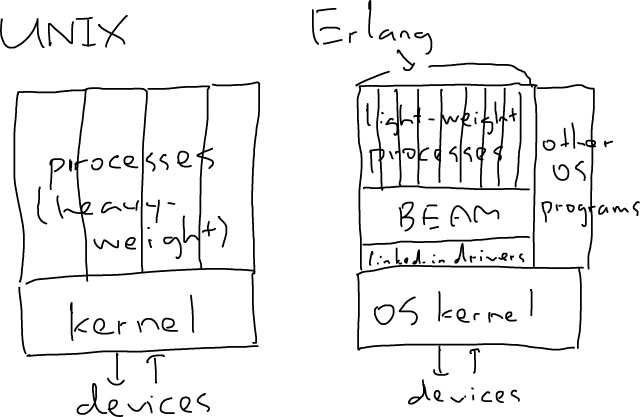 UNIX
processes
(heavy-
weight)
kernel
devices
Erlang
light-weight
processes
BEAM
linked-in drivers
other
OS
programs
OS kernel
devices